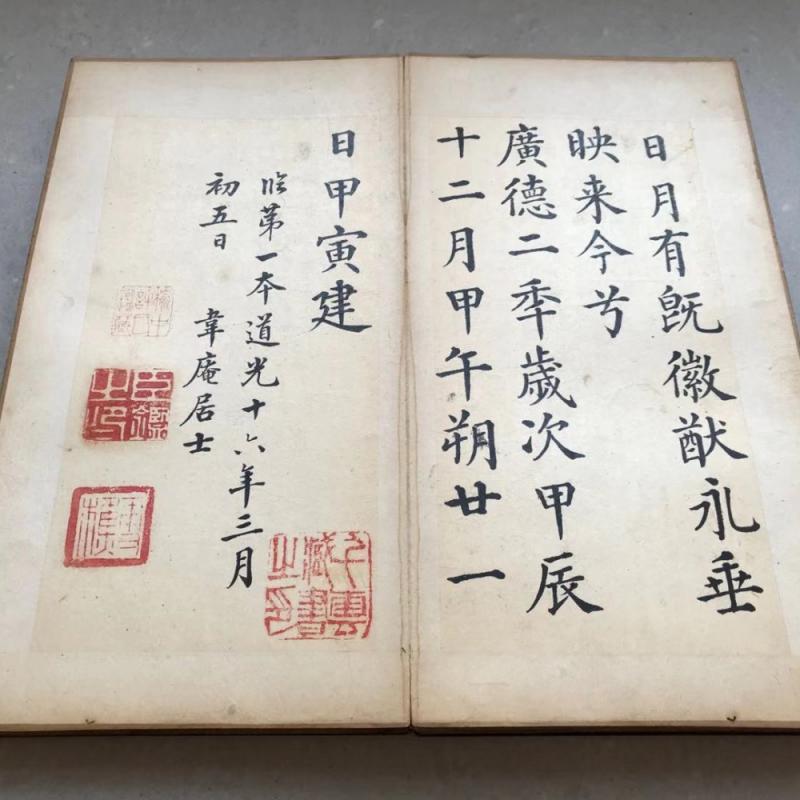 日月有既徽猷永垂
映来今兮
廣德二秊歲次甲辰
十二月甲午朔廿一
日甲寅建
臨第一本道光十六年三月
初五日 韋庵居士